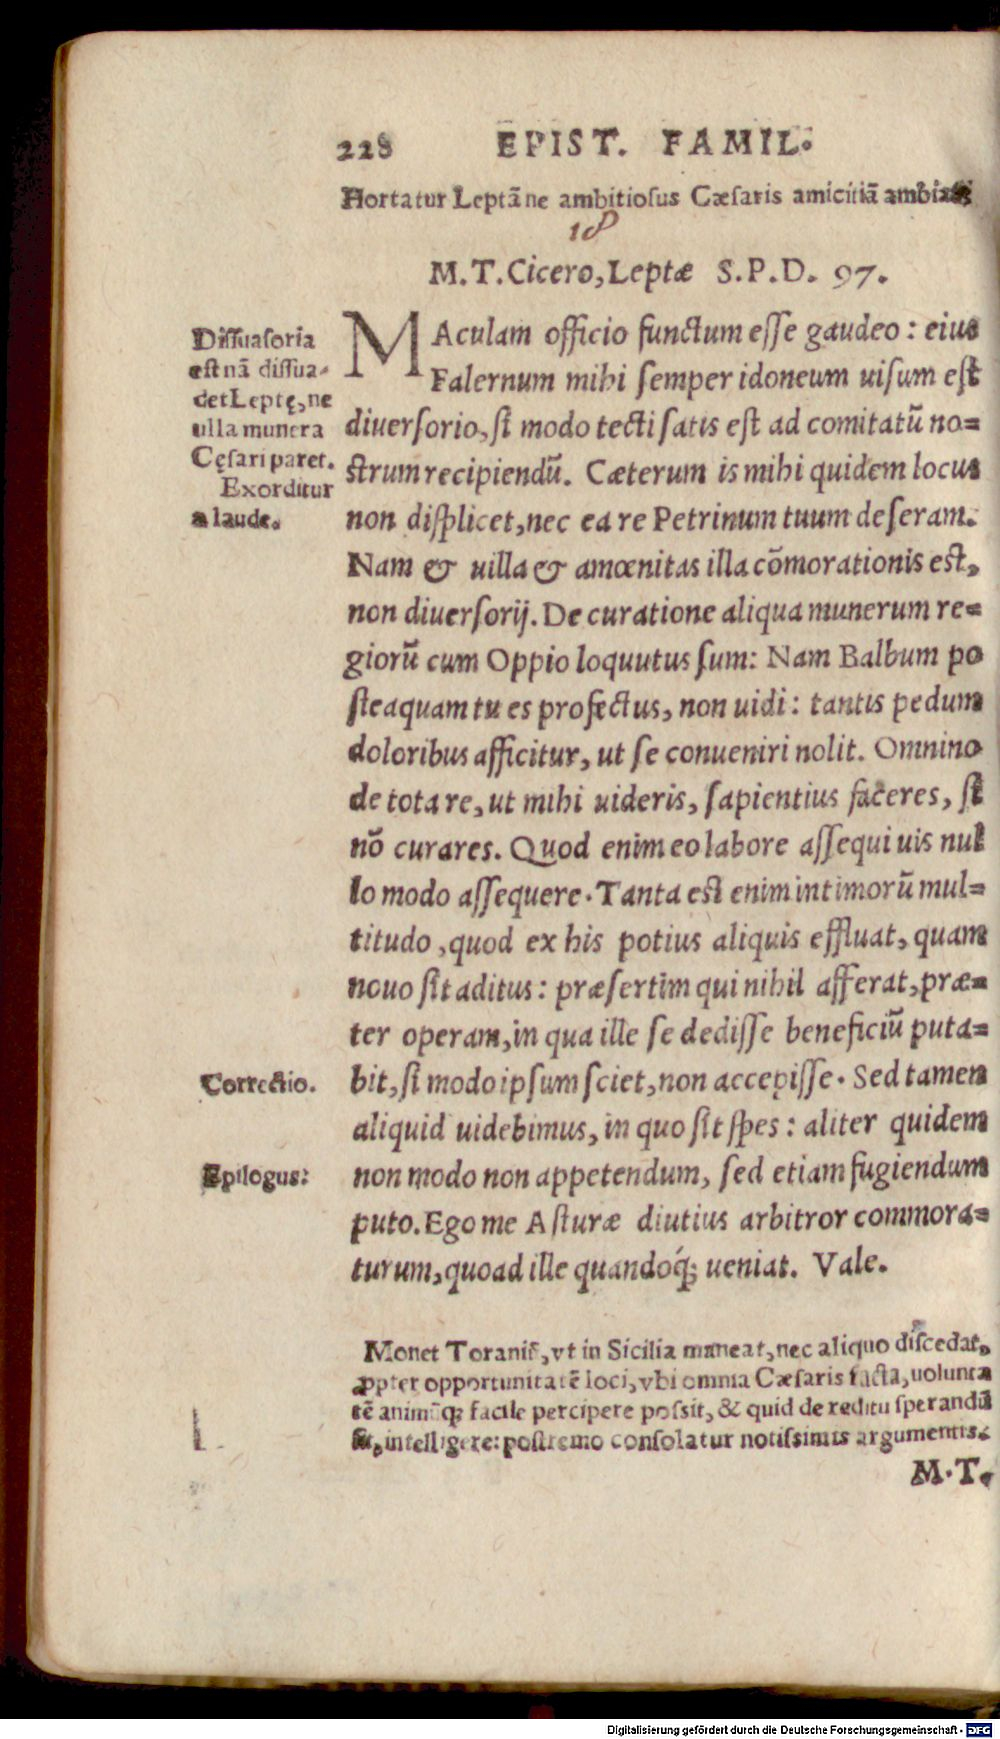 228 EPIST. FAMIL.
Hortatur Leptã ne ambitiosus Cæsaris amicitiã
18
M. T. Cicero, Leptæ S. P. D. 97.
Dissuasoria
est nã dissua-
det Leptę, ne
ulla munera
Cęsari paret.
Exorditur
a laude.
MAculam officio functum esse gaudeo: eius
Falernum mihi semper idoneum uisum est
diuersorio, si modo tecti satis est ad comitatũ no=
strum recipiendũ. Cæterum is mihi quidem locus
non displicet, nec ea re Petrinum tuum deseram.
Nam & uilla & amœnitas illa cõmorationis est,
non diuersorij. De curatione aliqua munerum re=
giorũ cum Oppio loquutus sum: Nam Balbum po
steaquam tu es profectus, non uidi: tantis pedum
doloribus afficitur, ut se conueniri nolit. Omnino
de tota re, ut mihi uideris, sapientius faceres, si
nõ curares. Quod enim eo labore assequi uis nul
lo modo assequere. Tanta est enim intimorũ mul=
titudo, quod ex his potius aliquis effluat, quam
nouo sit aditus: præsertim qui nihil afferat, præ=
ter operam, in qua ille se dedisse beneficiũ puta=
Correctio.
bit, si modo ipsum sciet, non accepisse. Sed tamen
aliquid uidebimus, in quo sit spes: aliter quidem
Epilogus:
non modo non appetendum, sed etiam fugiendum
puto. Ego me Asturæ diutius arbitror commora=
turum, quoad ille quandóq; ueniat. Vale.
Monet Toraniũ, vt in Sicilia maneat, nec aliquo discedat,
ꝓpter opportunitatẽ loci, vbi omnia Cæsaris facta, uolunta
tẽ animũq; facile percipere possit, & quid de reditu sperandũ
sit, intelligere: postremo consolatur notissimis argumentis.
M. T.
Digitalisierung gefördert durch die Deutsche Forschungsgemeinschaft - DFG